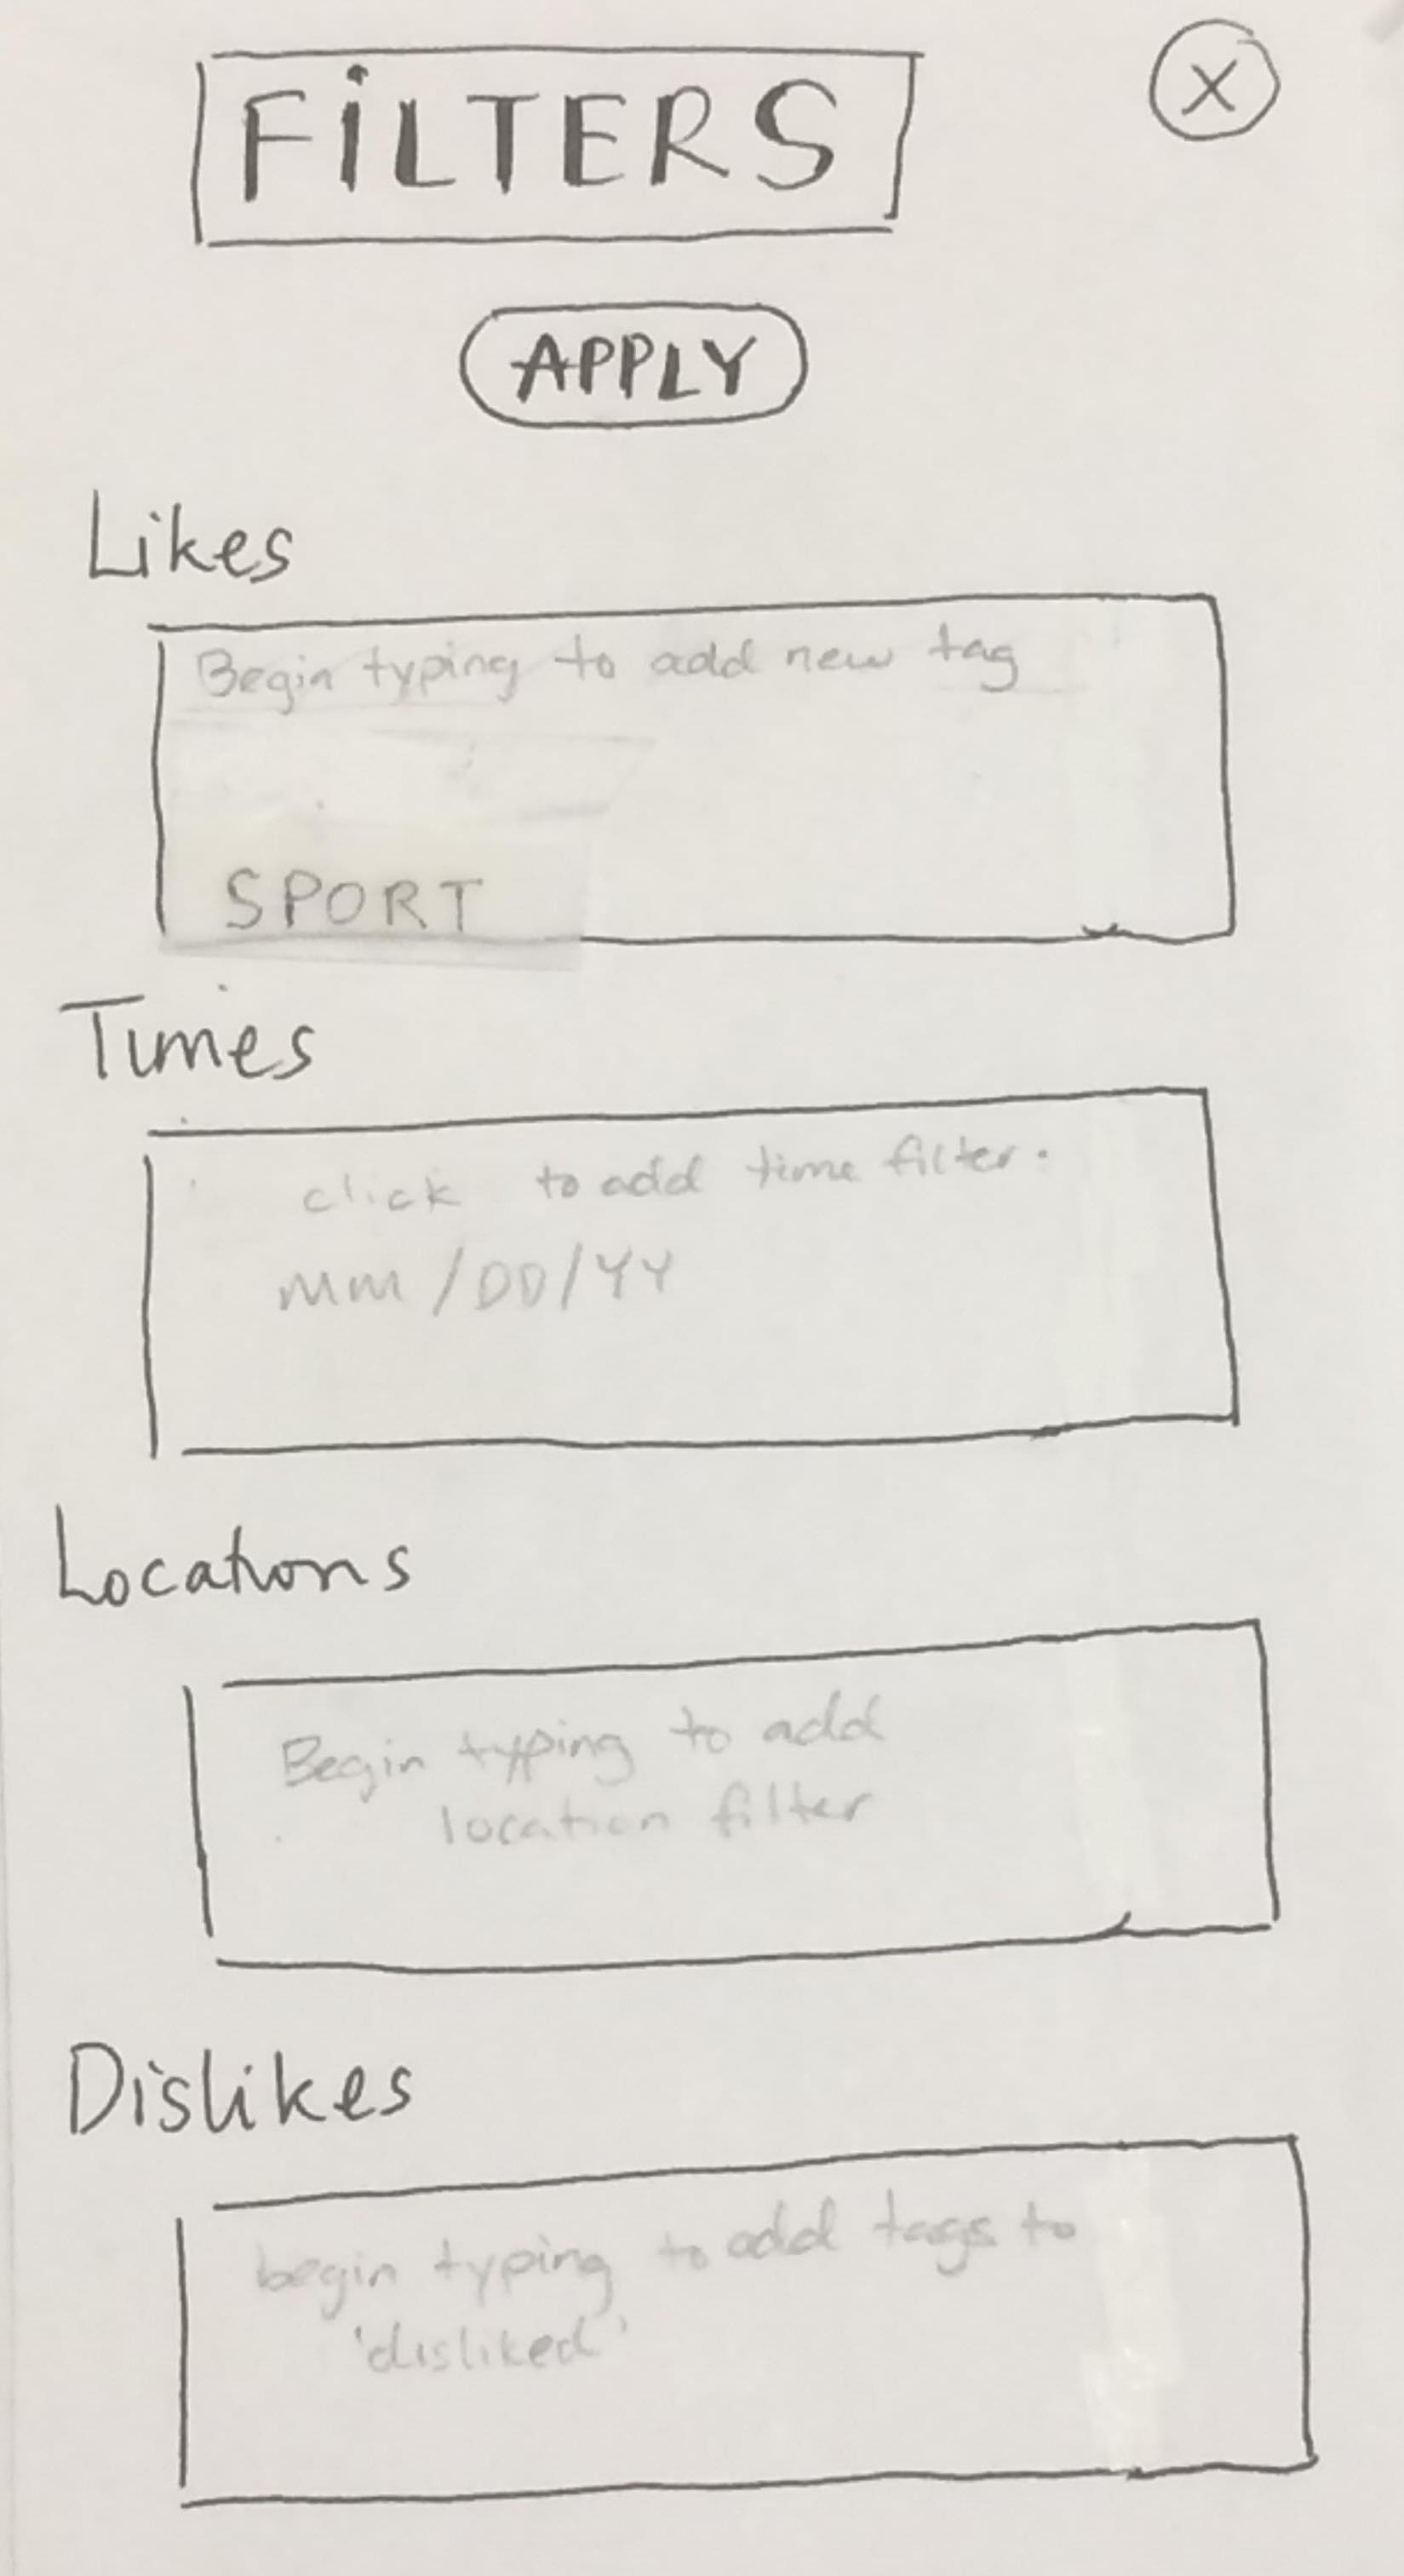 FiLTERS
X
APPLY
Likes
Begin typing to add new tag
SPORT
Times
click to add time filter:
MM/DD/YY
Locations
Begin typing to add
location filter
Dislikes
begin typing to add tags to
'disliked'